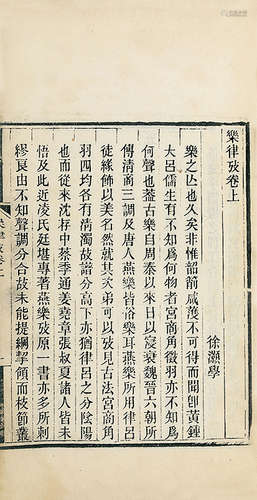 樂律攷卷上
徐灝學
樂之亾也久矣非惟韶箾咸頀不可得而聞卽黃鍾
大呂儒生有不知爲何物者宮商角徵羽亦不知爲
何聲也蓋古樂自周秦以來日以寖衰魏晉六朝所
傳淸商三調及唐人燕樂皆俗樂耳燕樂所用律呂
徒緣飾以美名然就其次弟可以攷見古法宮商角
羽四均各有淸濁故譜分高下亦猶律呂之分陰陽
也而從來沈存中蔡季通姜堯章張叔夏諸人皆未
悟及此近凌氏廷堪專著燕樂攷原一書亦多所刺
繆良由不知聲調分合故未能提綱挈領而枝節叢
樂律攷卷上